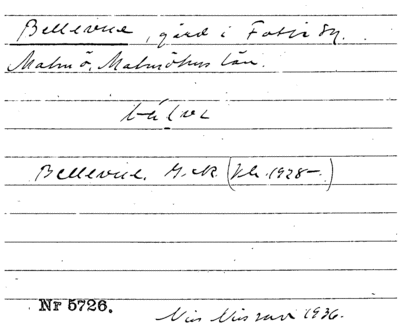 Bellevue, gård i Fosie sn.
Malmö, Malmöhus län.
Bellevue. G.K. 1928–)
Nr 5726.
Nils 1936.